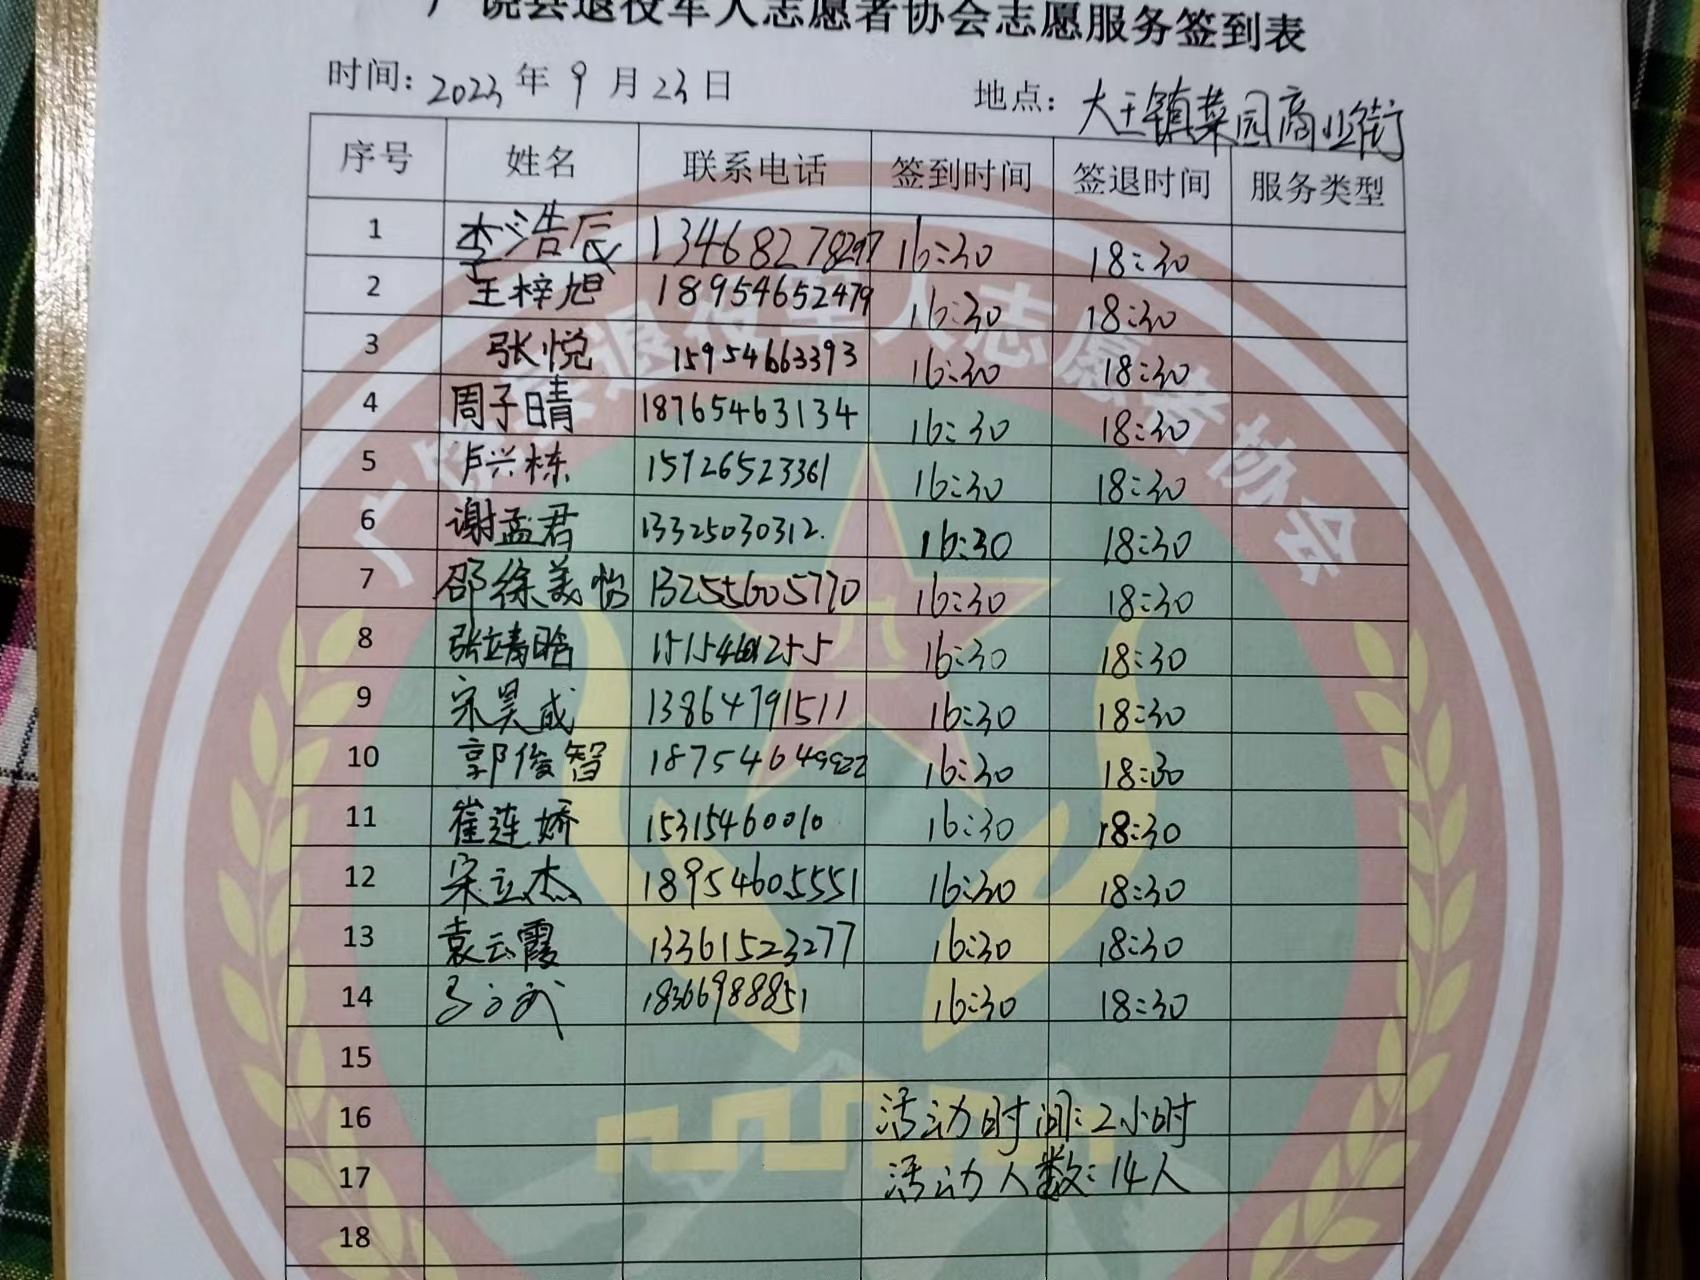 广饶县退役军人志愿者协会志愿服务签到表
时间: 2023 年 9 月 23 日 地点: 大王镇菜园商业街
序号 姓名 联系电话 签到时间 签退时间 服务类型
1 李浩辰 13468278297 16:30 18:30
2 王梓旭 18954652479 16:30 18:30
3 张悦 15954663393 16:30 18:30
4 周子晴 18765463134 16:30 18:30
5 卢兴栋 15726523361 16:30 18:30
6 谢孟君 13325030312. 16:30 18:30
7 邵徐美怡 13255605770 16:30 18:30
8 张靖晗 16:30 18:30
9 宋昊成 13864791511 16:30 18:30
10 郭俊智 18754649922 16:30 18:30
11 崔连娇 15315460010 16:30 18:30
12 宋立杰 18954605551 16:30 18:30
13 袁云霞 13361523277 16:30 18:30
14 18366988851 16:30 18:30
15
16 活动时间:2小时
17 活动人数:14人
18
广饶县退役军人志愿者协会